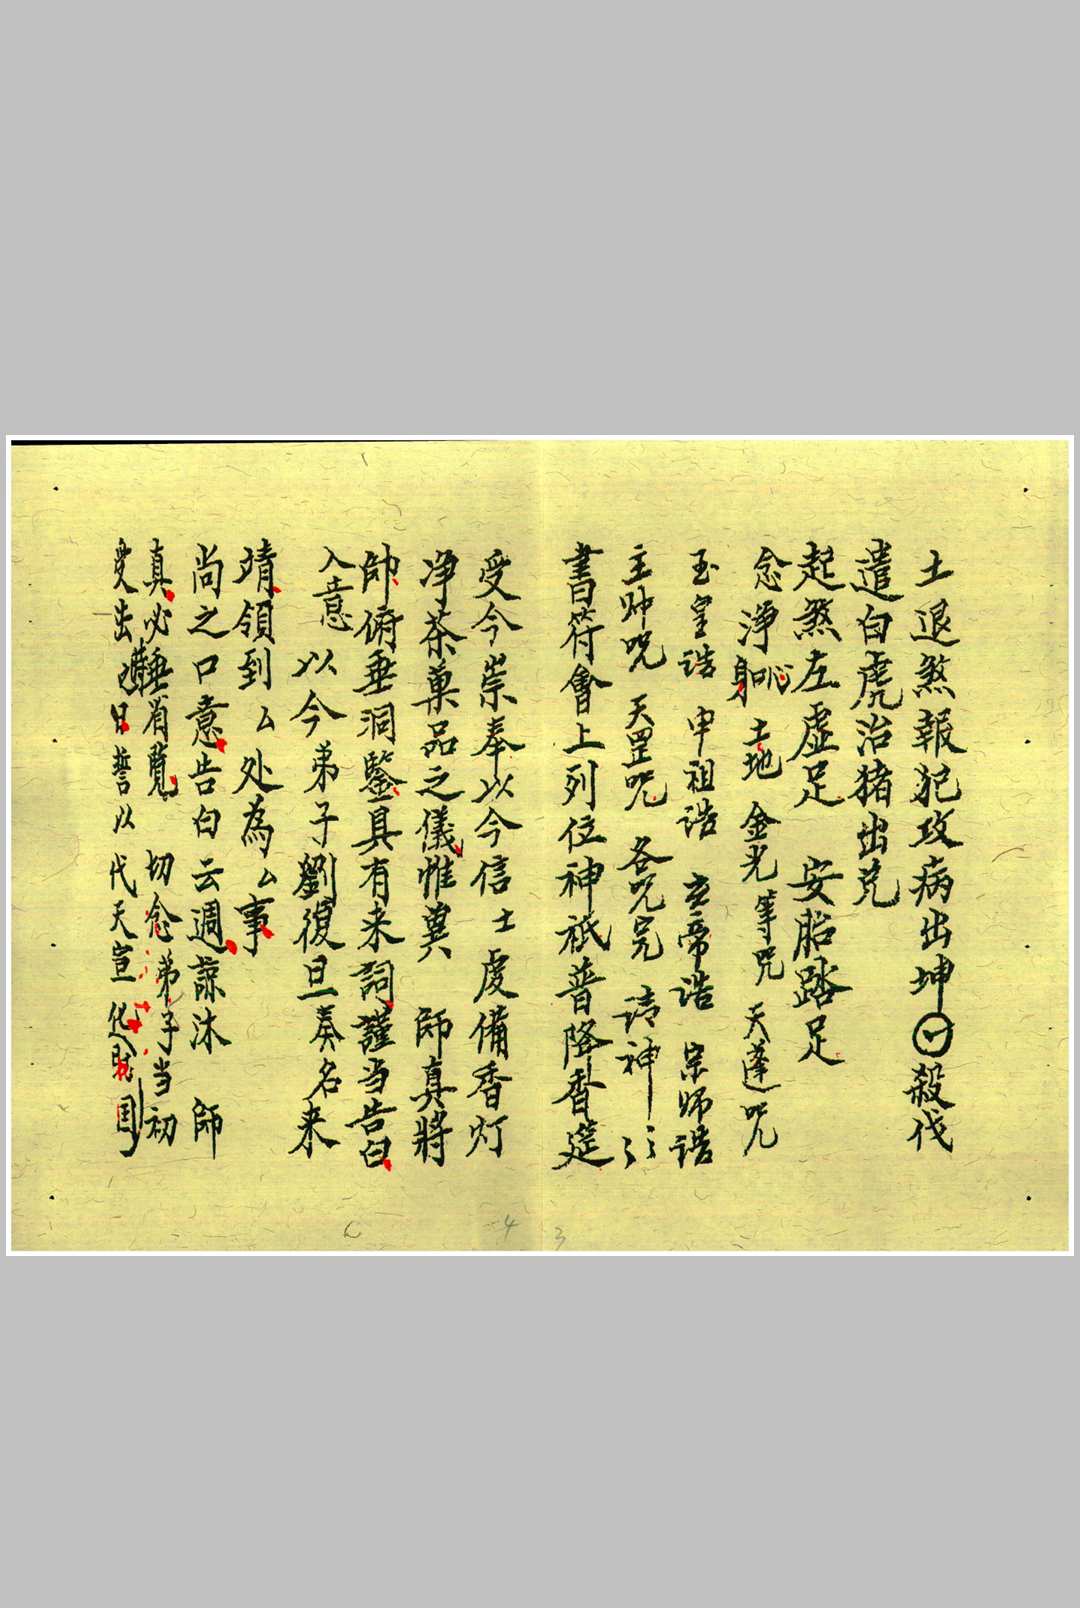 土退煞報犯攻病出坤 殺伐
遣白虎治猪出兑
起煞左虚足 安胎踏足
念淨心口身 土地 金光等咒 天蓬咒
玉皇诰 申祖诰 玄帝诰 宗师诰
主帅咒 天罡咒 各咒完 请神
書符會上列位神祇普降香筵
受今崇奉以今信士虔備香灯
净茶菓品之儀惟冀 師真將
帥俯垂洞鑒具有来詞謹当告白
入意 以今弟子劉復旦奏名来
靖領到厶处為厶事
尚之口意告白云週諒沐 師
真必垂省覧 切念弟子当初
受出 日誓以代天宣化 国
4 3